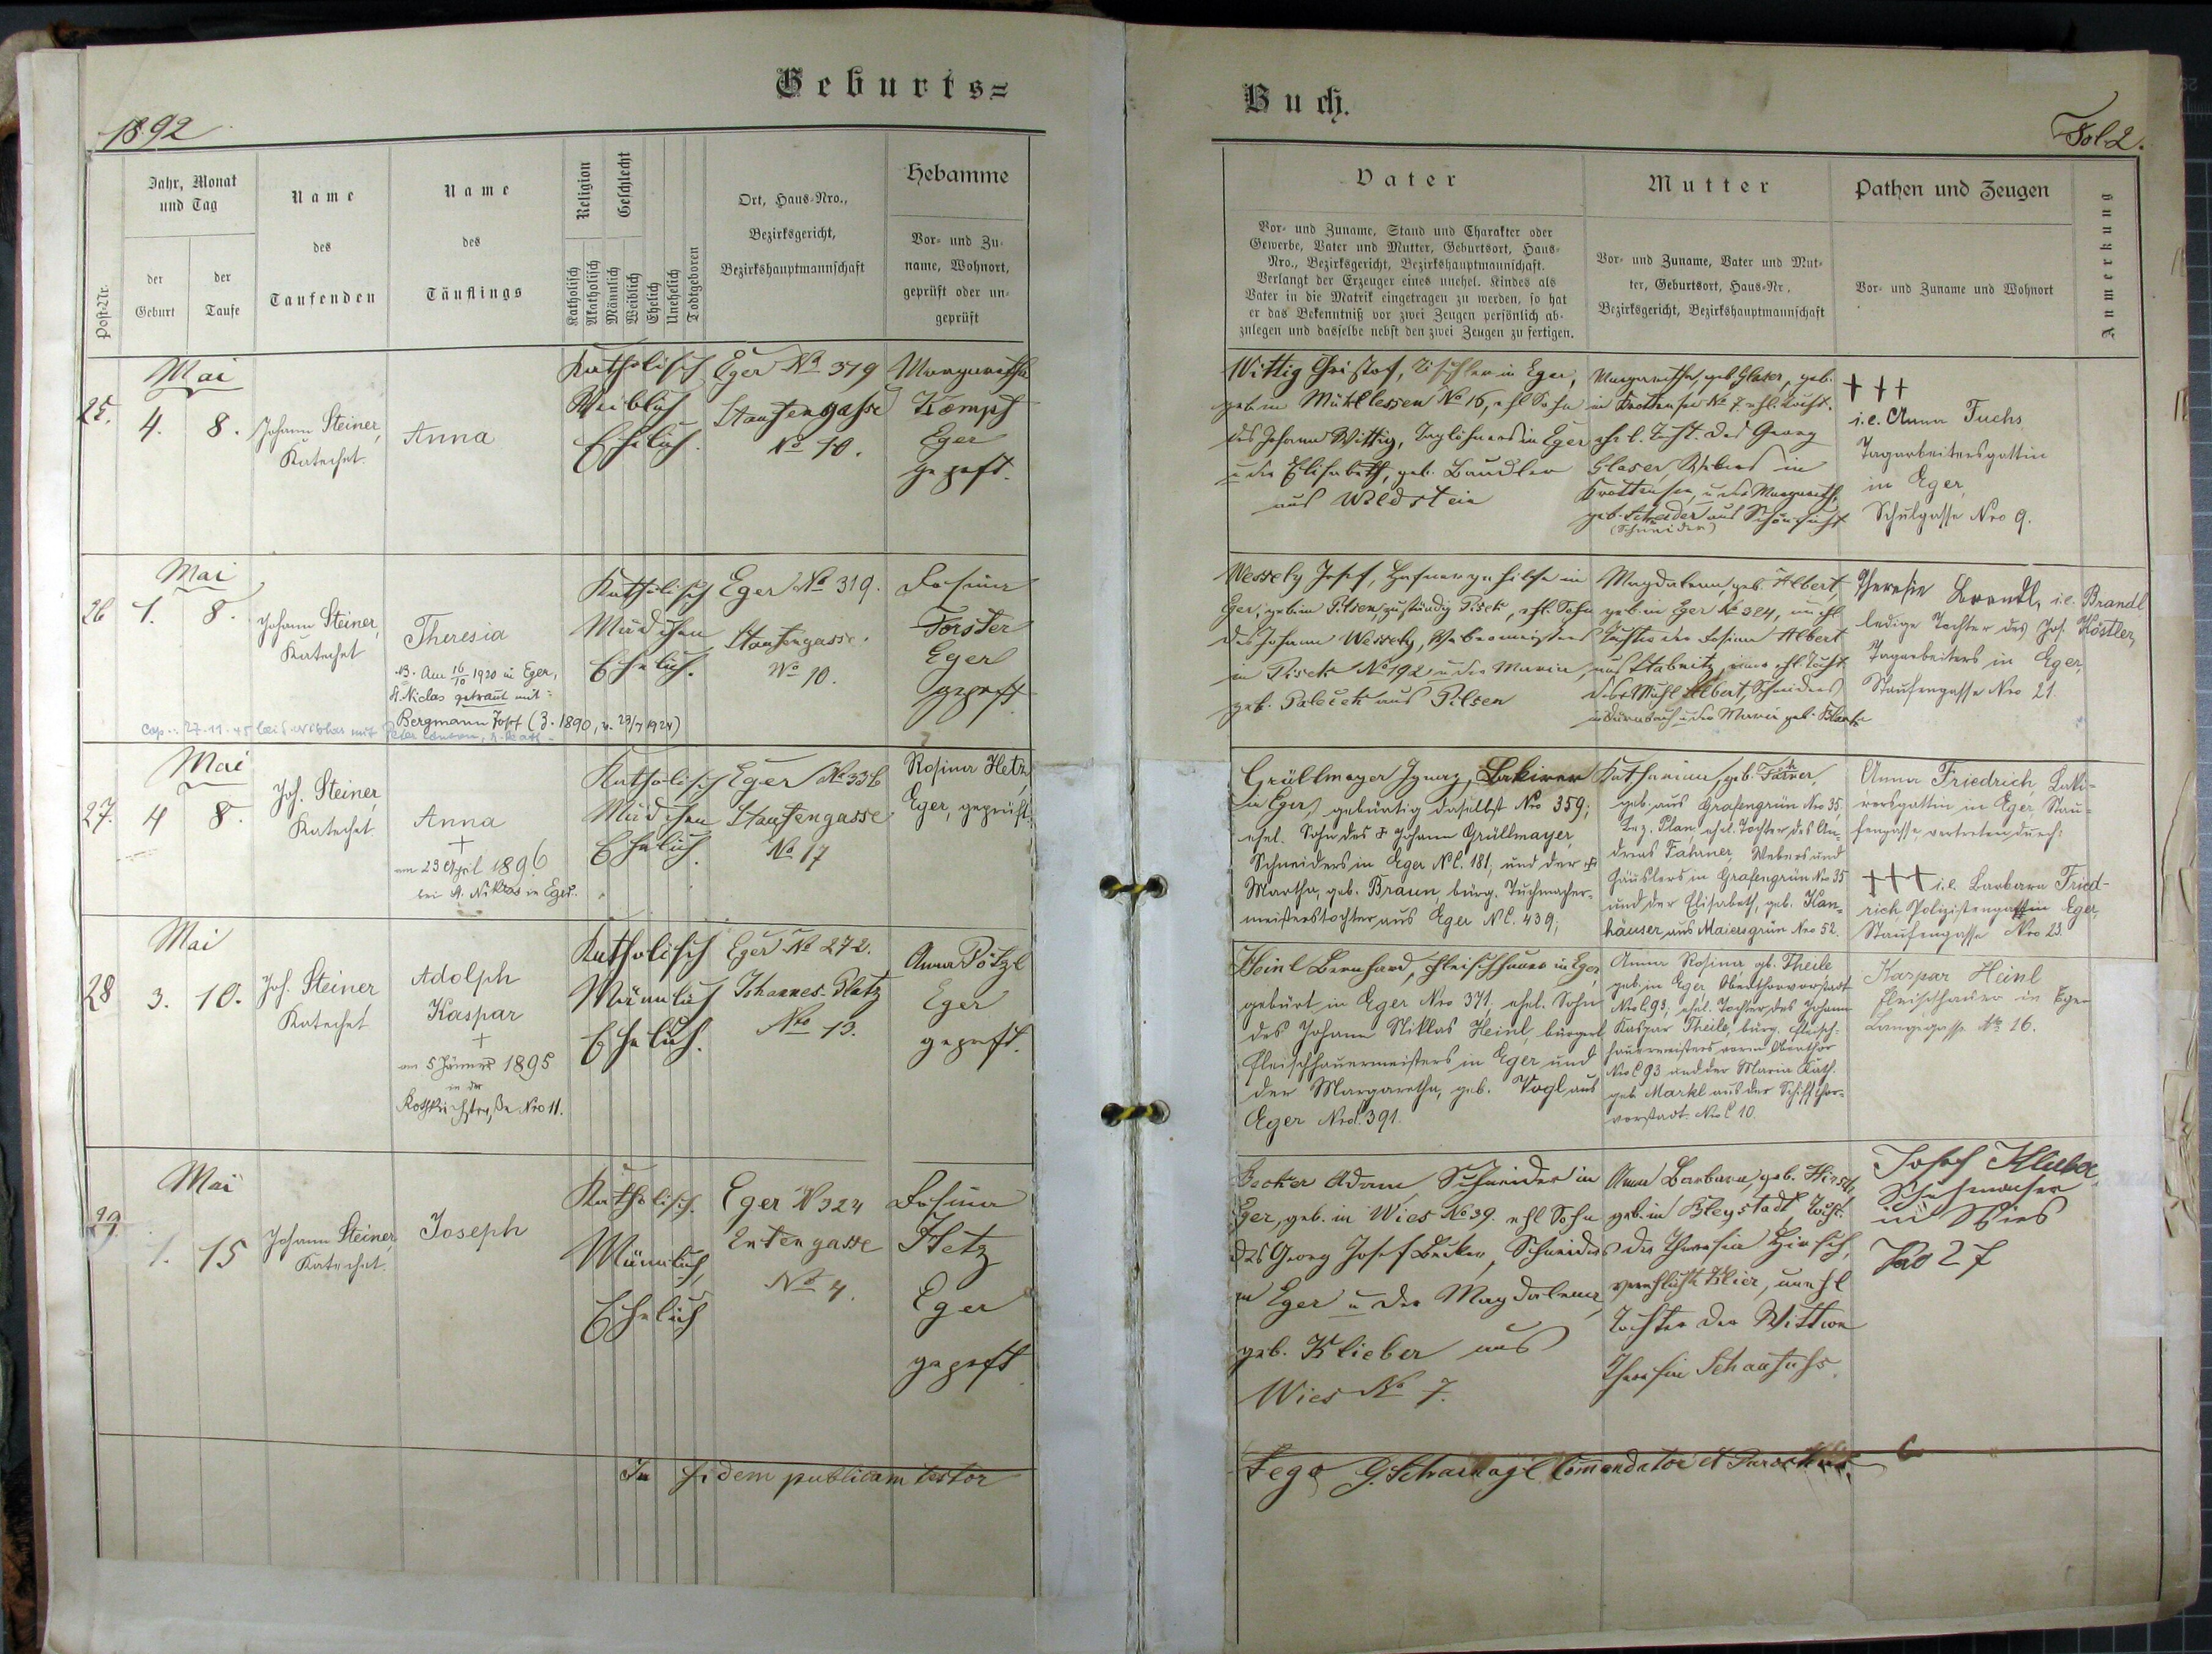 Geburts=
Buch.
1892
Fol 2.
Post-Nr.
Jahr, Monat
und Tag
der
Geburt
der
Taufe
Name
des
Taufenden
Name
des
Täuflings
Religion
Katholisch
Akatholisch
Geschlecht
Männlich
Weiblich
Ehelich
Unehelich
Todtgeboren
Ort, Haus-Nro.,
Bezirksgericht,
Bezirkshauptmannschaft
Hebamme
Vor- und Zu-
name, Wohnort,
geprüft oder un-
geprüft
Vater
Vor- und Zuname, Stand und Charakter oder
Gewerbe, Vater und Mutter, Geburtsort, Haus-
Nro., Bezirksgericht, Bezirkshauptmannschaft.
Verlangt der Erzeuger eines unehel. Kindes als
Vater in die Matrik eingetragen zu werden, so hat
er das Bekenntniß vor zwei Zeugen persönlich ab-
zulegen und dasselbe nebst den zwei Zeugen zu fertigen.
Mutter
Vor- und Zuname, Vater und Mut-
ter, Geburtsort, Haus-Nr.,
Bezirksgericht, Bezirkshauptmannschaft
Pathen und Zeugen
Vor- und Zuname und Wohnort
Anmerkung
25.
Mai
4. 8.
Johann Steiner,
Katechet.
Anna
Katholisch
Weiblich
Ehelich.
Eger No 319
Staufengasse
No 10.
Margaretha
Kempf
Eger
geprft.
Wittig Christof, Tischler in Eger,
geb. in Mühllessen No 16, ehl Sohn
des Johann Wittig, Taglöhners in Eger
u. der Elisabeth, geb. Baudler
aus Wildstein
Margaretha, geb. Glaser, geb.
in Krottensee No 7. ehl. Tocht.
ehl. Tocht. des Georg
Glaser, Webers in
Krottensee, u. der Margareth,
geb. Schneider aus Schönficht
(Schneider)
+++
i.e. Anna Fuchs
Tagarbeitersgattin
in Eger,
Schulgasse Nro 9.
26
Mai
1. 8.
Johann Steiner,
Katechet
Theresia
NB. Am 16/10 1920 in Eger,
St. Niclas getraut mit:
Bergmann Josef
Cop.: 27.11.45
Katholisch
Mädchen
Ehelich.
Eger No 319.
Staufengasse.
No 10.
Rosina
Forster
Eger
geprft
Wessely Josef, Hafnergehilfe in
Eger, geb. in Pilsen, zuständig Pisek, ehl. Sohn
des Johann Wessely, Webermeisters
in Pisek No 192 u. der Maria,
geb. Palecek aus Pilsen
Magdalena, geb. Albert,
geb. in Eger No 324, unehl.
Tochter der Rosina Albert
aus Stabnitz, einer ehl. Tocht
des Albert, Schneiders
u. der Maria geb.
Theresia Brandl, i.e. Brandl
ledige Tochter des Jos. Köstler,
Tagarbeiters in Eger,
Staufengasse Nro 21.
27.
Mai
4 8.
Joh. Steiner,
Katechet
Anna
+
am 23 April 1896
bei St. Niklas in Eger.
Katholisch
Mädchen
Ehelich.
Eger No 336
Staufengasse
No 17
Rosina Hetz,
Eger, geprüft.
Grüllmayer Ignaz, Lakirer
in Eger, gebürtig daselbst Nro 359;
ehel. Sohn des + Johann Grüllmayer,
Schneiders in Eger N C. 181, und der +
Martha, geb. Braun, bürg. Tuchmacher-
meisterstochter aus Eger N C. 439;
Katharina, geb. Fahrner,
geb. aus Grafengrün Nro 35,
Bez. Plan, ehel. Tochter des An-
dreas Fahrner, Webers und
Häuslers in Grafengrün No 35
und der Elisabeth, geb. Han-
häuser, aus Maiersgrün Nro 52.
Anna Friedrich, Laki-
rersgattin in Eger, Stau-
fengasse, vertreten durch:
+++ i.e. Barbara Fried-
rich, Polizistengattin Eger,
Staufengasse Nro 23.
28
Mai
3. 10.
Joh. Steiner,
Katechet
Adolph
Kaspar
+
am 5 Jänner 1895
in der
Rothkirchstraße Nro 11.
Katholisch
Männlich
Ehelich.
Eger No 272.
Johannes-Platz
Nro 13.
Anna Pötzl
Eger
geprft.
Heinl Bernhard, Fleischhauer in Eger,
gebürt. in Eger Nro 371, ehel. Sohn
des Johann Niklas Heinl, bürgerl
Fleischhauermeisters in Eger und
der Margaretha, geb. Vogl aus
Eger Nro C. 391.
Anna Rosina, gb. Theile
geb. in Eger, Oberthorvorstadt
Nro C 93, ehel. Tochter des Johann
Kaspar Theile, bürg. Fleisch-
hauermeisters vorm Oberthor
Nro C 93 und der Maria Kath.
geb. Markl aus der Schiffthor-
vorstadt. Nro C 10.
Kaspar Heinl
Fleischhauer in Eger
Langegasse No. 16.
29.
Mai
1. 15
Johann Steiner,
Katechet.
Joseph
Katholisch.
Männlich,
Ehelich
Eger N 324
Entengasse
No 4.
Rosina
Hetz
Eger
geprft.
Becker Adam, Schneider in
Eger, geb. in Wies No 39. ehl Sohn
des Georg Josef Becker, Schneiders
in Eger u. der Magdalena,
geb. Klieber aus
Wies No 7.
Anna Barbara, geb. Hirsch,
geb. in Bleystadt, Tocht.
der Theresia Hirsch,
verehlichte Klier, unehl
Tochter der Wittwe
Theresia Schaufuß.
Josef Klieber
Schuhmacher
in Wies
No 27
In fidem publicam testor
Lego G. Scharnagl Comendator et Parochus.